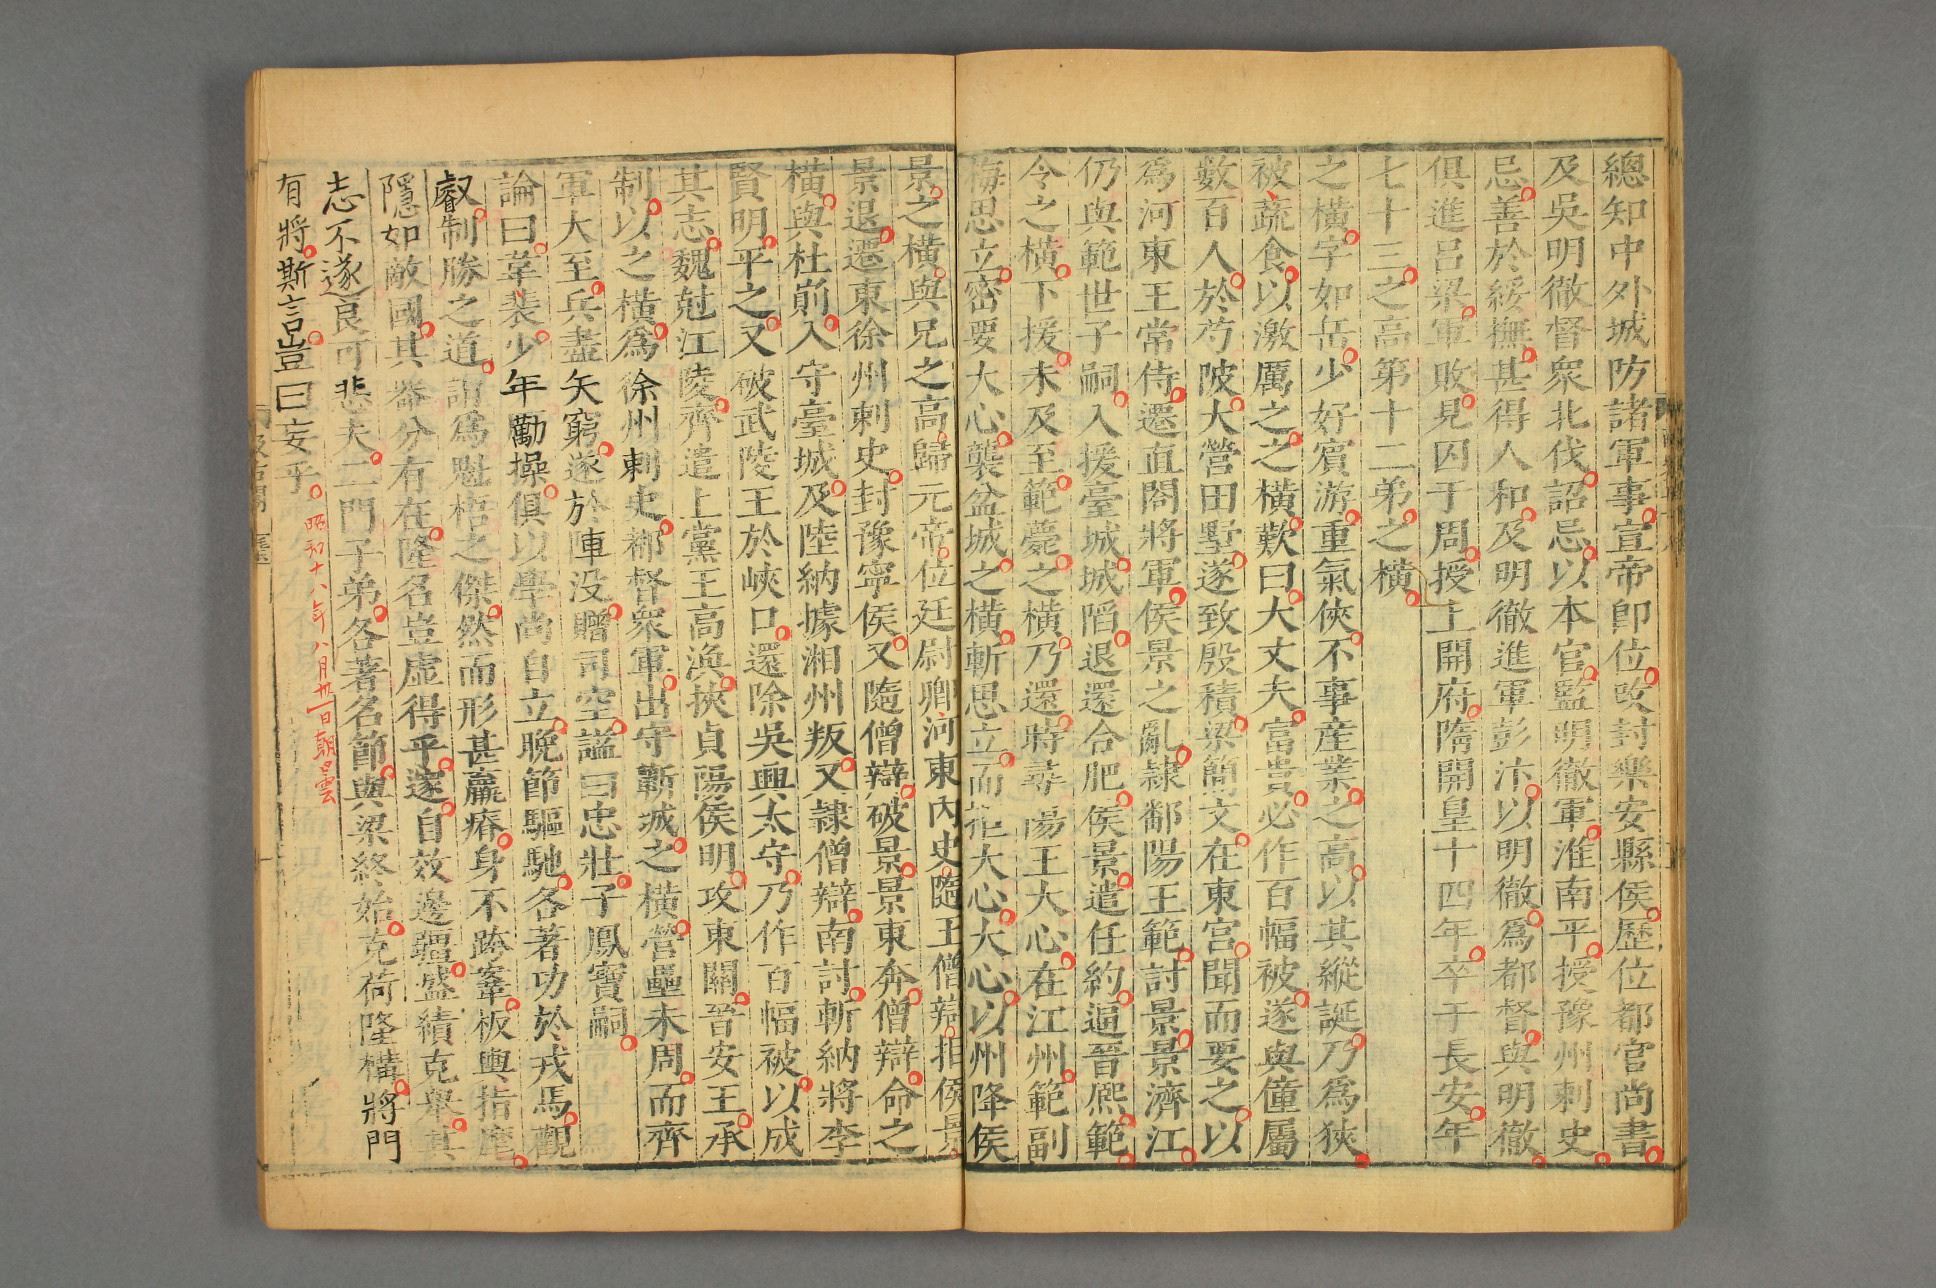 總知中外城防諸軍事宣帝卽位改封樂安縣侯歷位都官尚書
及吳明徹督衆北伐詔忌以本官監明徹軍淮南平授豫州刺史
忌善於綏撫甚得人和及明徹進軍彭汴以明徹爲都督與明徹
俱進呂梁軍敗見囚于周授上開府隋開皇十四年卒于長安年
七十三之高第十二弟之橫
之橫字如岳少好賓游重氣俠不事産業之高以其縱誕乃爲狹
被疏食以激厲之之橫歎曰大丈夫富貴必作百幅被遂與僮屬
數百人於芍陂大營田墅遂致殷積梁簡文在東宮聞而要之以
爲河東王常侍遷直閤將軍侯景之亂隷鄱陽王範討景景濟江
仍與範世子嗣入援臺城城陷退還合肥侯景遣任約逼晉熈範
令之橫下援未及至範薨之橫乃還時尋陽王大心在江州範副
梅思立密要大心襲盆城之橫斬思立而拒大心大心以州降侯
景之橫與兄之高歸元帝位廷尉卿河東內史隨王僧辯拒侯景
景退遷東徐州刺史封豫寧侯又隨僧辯破景景東奔僧辯命之
橫與杜崱入守臺城及陸納據湘州叛又隷僧辯南討斬納將李
賢明平之又破武陵王於峽口還除吳興太守乃作百幅被以成
其志魏尅江陵齊遣上黨王高渙挾貞陽侯明攻東關晉安王承
制以之橫爲徐州刺史都督衆軍出守蘄城之橫營壘未周而齊
軍大至兵盡矢窮遂於陣没贈司空謚曰忠壯子鳳寶嗣
論曰韋裴少年勵操俱以學尚自立晚節驅馳各著功於戎馬觀
叡制勝之道謂爲魁梧之傑然而形甚羸瘠身不跨鞌板輿指麾
隱如敵國其器分有在隆名豈虛得乎邃自效邊疆盛績克舉其
志不遂良可悲夫二門子弟各著名節與梁終始克荷隆構將門
有將斯言豈曰妄乎
昭和十八年八月卅一日朝雲